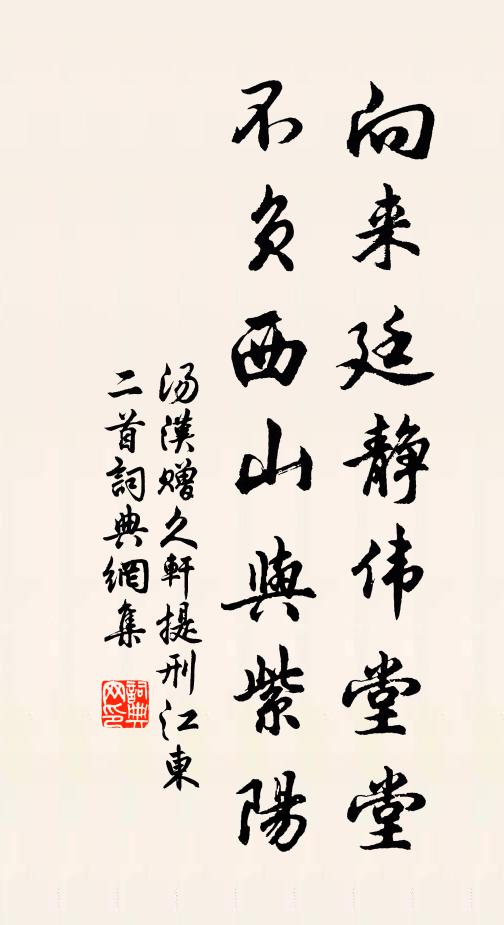 向来廷静伟堂堂
不负西山與紫陽
汤漢赠久軒提刑江東
二首詞典網集
詞典网印